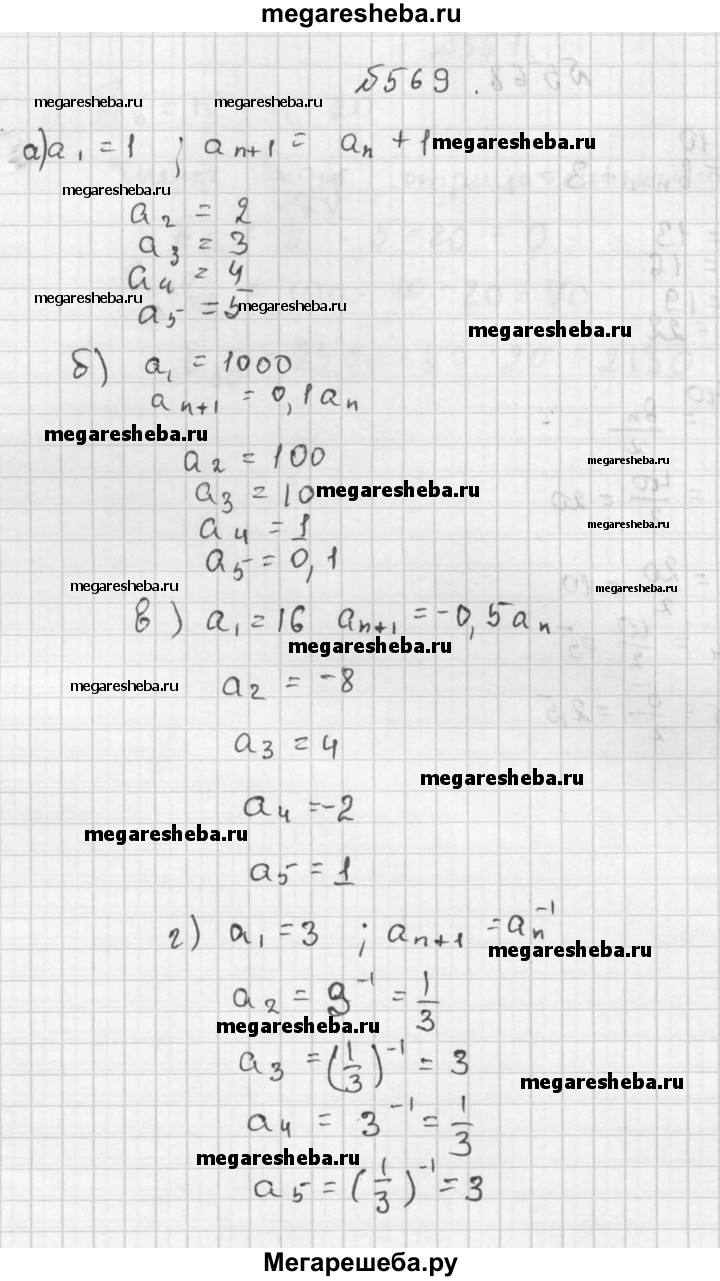 megaresheba.ru
№569.
megaresheba.ru megaresheba.ru
а) a₁ = 1 ; aₙ₊₁ = aₙ + 1 megaresheba.ru
megaresheba.ru
a₂ = 2
a₃ = 3
a₄ = 4
megaresheba.ru a₅ = 5 megaresheba.ru
megaresheba.ru
б) a₁ = 1000
aₙ₊₁ = 0,1aₙ
megaresheba.ru
a₂ = 100
megaresheba.ru
a₃ = 10 megaresheba.ru
a₄ = 1
megaresheba.ru
a₅ = 0,1
megaresheba.ru megaresheba.ru
в) a₁ = 16 aₙ₊₁ = -0,5aₙ
megaresheba.ru
megaresheba.ru a₂ = -8 megaresheba.ru
a₃ = 4
megaresheba.ru
a₄ = -2
megaresheba.ru
a₅ = 1 megaresheba.ru
г) a₁ = 3 ; aₙ₊₁ = aₙ⁻¹
megaresheba.ru
a₂ = 3⁻¹ = 1/3
megaresheba.ru
a₃ = (1/3)⁻¹ = 3
megaresheba.ru
a₄ = 3⁻¹ = 1/3
megaresheba.ru
a₅ = (1/3)⁻¹ = 3
Мегарешеба.ру